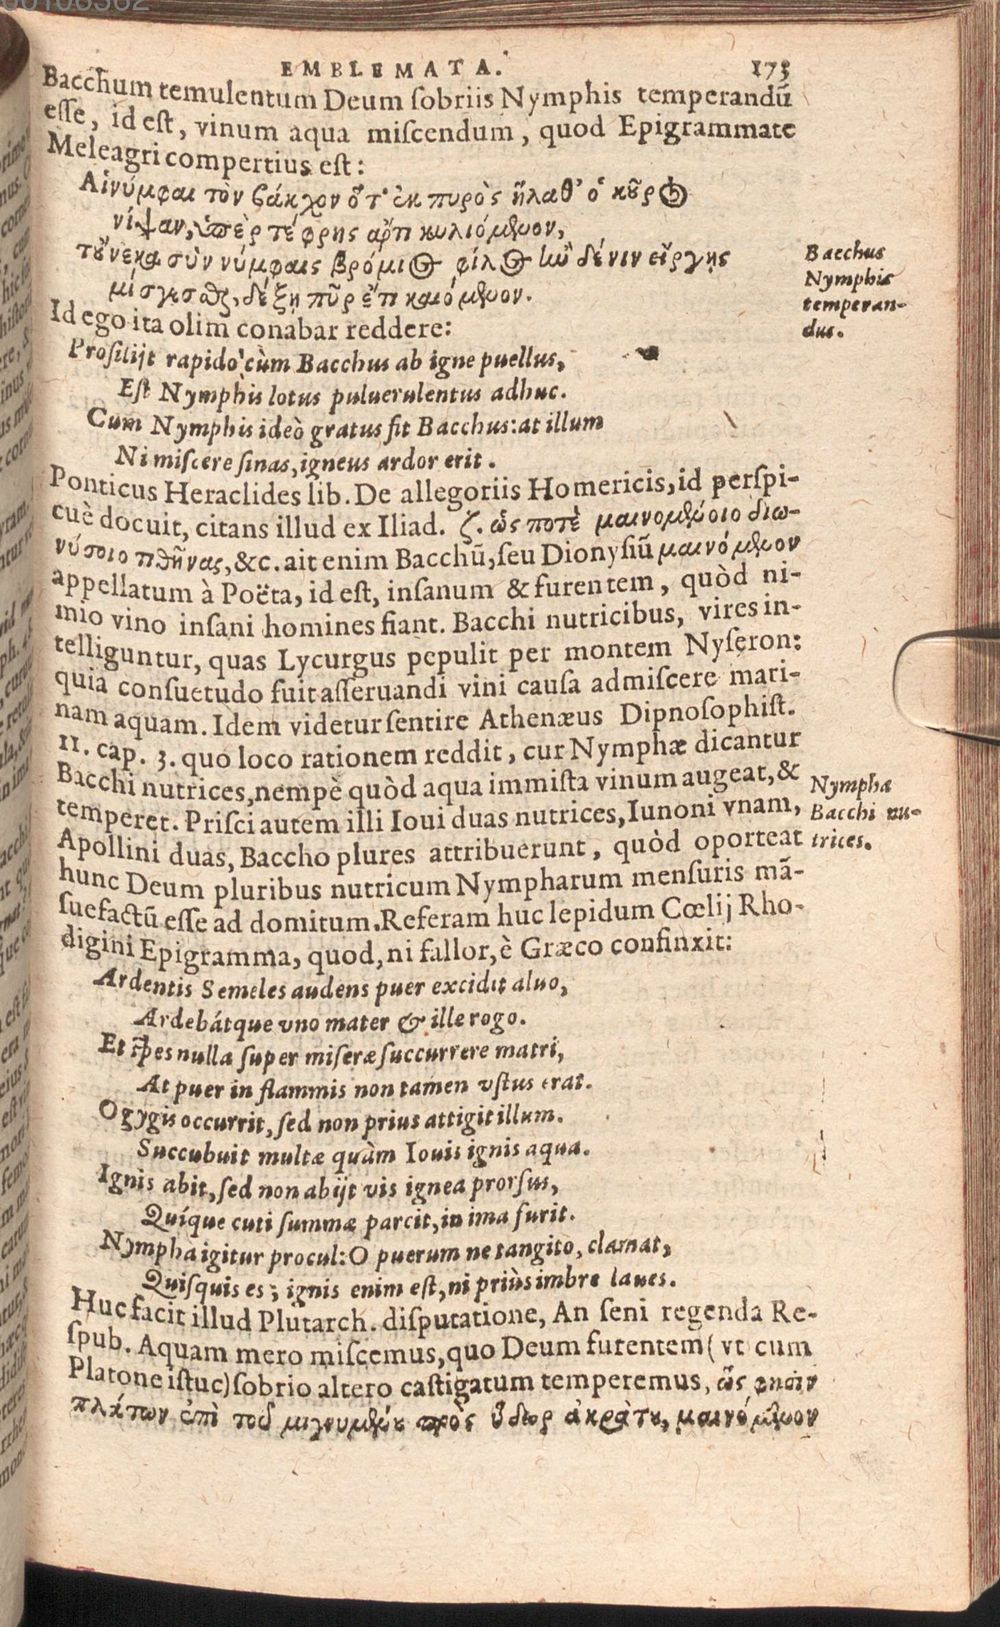 EMBLEMATA. 175
Bacchum temulentum Deum ſobriis Nymphis temperandũ
eſſe, id eſt, vinum aqua miſcendum, quod Epigrammate
Meleagri compertius eſt:
Αἱ νύμφαι τὸν βάκχον ὅτ' ἐκ πυρὸς ἥλαθ' ὁ κοῦρος
νίψαν, ὑπὲρ τέφρης ἄρτι κυλιόμενον,
τοὔνεκα σὺν νύμφαις βρόμιος φίλος ἢν δέ νιν εἴργῃς
μίσγεσθαι, δέξῃ πῦρ ἔτι καιόμενον.
Bacchus
Nymphis
temperan-
dus.
Id ego ita olim conabar reddere:
Proſilijt rapido cùm Bacchus ab igne puellus,
Eſt Nymphis lotus puluerulentus adhuc.
Cum Nymphis ideò gratus fit Bacchus: at illum
Ni miſcere ſinas, igneus ardor erit.
Ponticus Heraclides lib. De allegoriis Homericis, id perſpi-
cuè docuit, citans illud ex Iliad. ζ. ὥς ποτὲ μαινομένοιο διω-
νύσοιο τιθῆνας, &c. ait enim Bacchũ, ſeu Dionyſiũ μαινόμενον
appellatum à Poëta, id eſt, inſanum & furentem, quòd ni-
mio vino inſani homines fiant. Bacchi nutricibus, vires in-
telliguntur, quas Lycurgus pepulit per montem Nyſeron:
quia conſuetudo fuit aſſeruandi vini cauſa admiſcere mari-
nam aquam. Idem videtur ſentire Athenæus Dipnoſophiſt.
11. cap. 3. quo loco rationem reddit, cur Nymphæ dicantur
Bacchi nutrices, nempè quòd aqua immiſta vinum augeat, &
temperet. Priſci autem illi Ioui duas nutrices, Iunoni vnam,
Apollini duas, Baccho plures attribuerunt, quòd oporteat
Nympha
Bacchi nu-
trices.
hunc Deum pluribus nutricum Nympharum menſuris mã-
ſuefactũ eſſe ad domitum. Referam huc lepidum Cœlij Rho-
digini Epigramma, quod, ni fallor, è Græco confinxit:
Ardentis Semeles audens puer excidit aluo,
Ardebátque vno mater & ille rogo.
Et ſpes nulla ſuper miſeræ ſuccurrere matri,
At puer in flammis non tamen vſtus erat.
Ogygis occurrit, ſed non prius attigit illum.
Succubuit multæ quàm Iouis ignis aqua.
Ignis abit, ſed non abijt vis ignea prorſus,
Quíque cuti ſummæ parcit, in ima furit.
Nympha igitur procul: O puerum ne tangito, clamat,
Quiſquis es; ignis enim eſt, ni priùs imbre laues.
Huc facit illud Plutarch. diſputatione, An ſeni regenda Re-
ſpub. Aquam mero miſcemus, quo Deum furentem (vt cum
Platone iſtuc) ſobrio altero caſtigatum temperemus, ὥς φησιν
πλάτων ἐπὶ τοῦ μιγνυμένου πρὸς ὕδωρ ἀκράτου, μαινόμενον